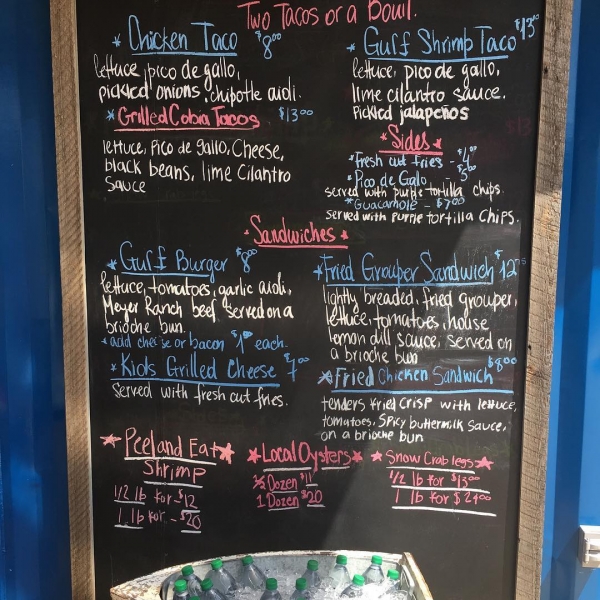 Two Tacos or a Bowl.
* Chicken Taco $8⁰⁰
lettuce, pico de gallo,
pickled onions, chipotle aioli.
* Grilled Cobia Tacos $13⁰⁰
lettuce, Pico de Gallo, Cheese,
black beans, lime Cilantro
Sauce
* Gulf Shrimp Taco $13⁰⁰
lettuce, pico de gallo,
lime cilantro sauce.
Pickled jalapeños
* Sides *
* Fresh cut fries - $4⁰⁰
* Pico de Gallo - $5⁰⁰
served with purple tortilla chips.
* Guacamole - $7⁰⁰
served with purple tortilla Chips.
* Sandwiches *
* Gulf Burger $8⁰⁰
lettuce, tomatoes, garlic aioli,
Meyer Ranch beef served on a
brioche bun.
* add cheese or bacon $1⁰⁰ each.
* Kids Grilled Cheese $7⁰⁰
Served with fresh cut fries.
* Fried Grouper Sandwich $12
lightly breaded, fried grouper,
lettuce, tomatoes, house
lemon dill sauce, served on
a brioche bun
$8⁰⁰
* Fried Chicken Sandwich
tenders fried crisp with lettuce,
tomatoes, Spicy buttermilk sauce,
on a brioche bun
* Peel and Eat *
Shrimp
1/2 lb for $12
1 lb for - $20
* Local Oysters *
1/2 Dozen $11
1 Dozen $20
* Snow Crab legs *
1/2 lb for $13⁰⁰
1 lb for $24⁰⁰